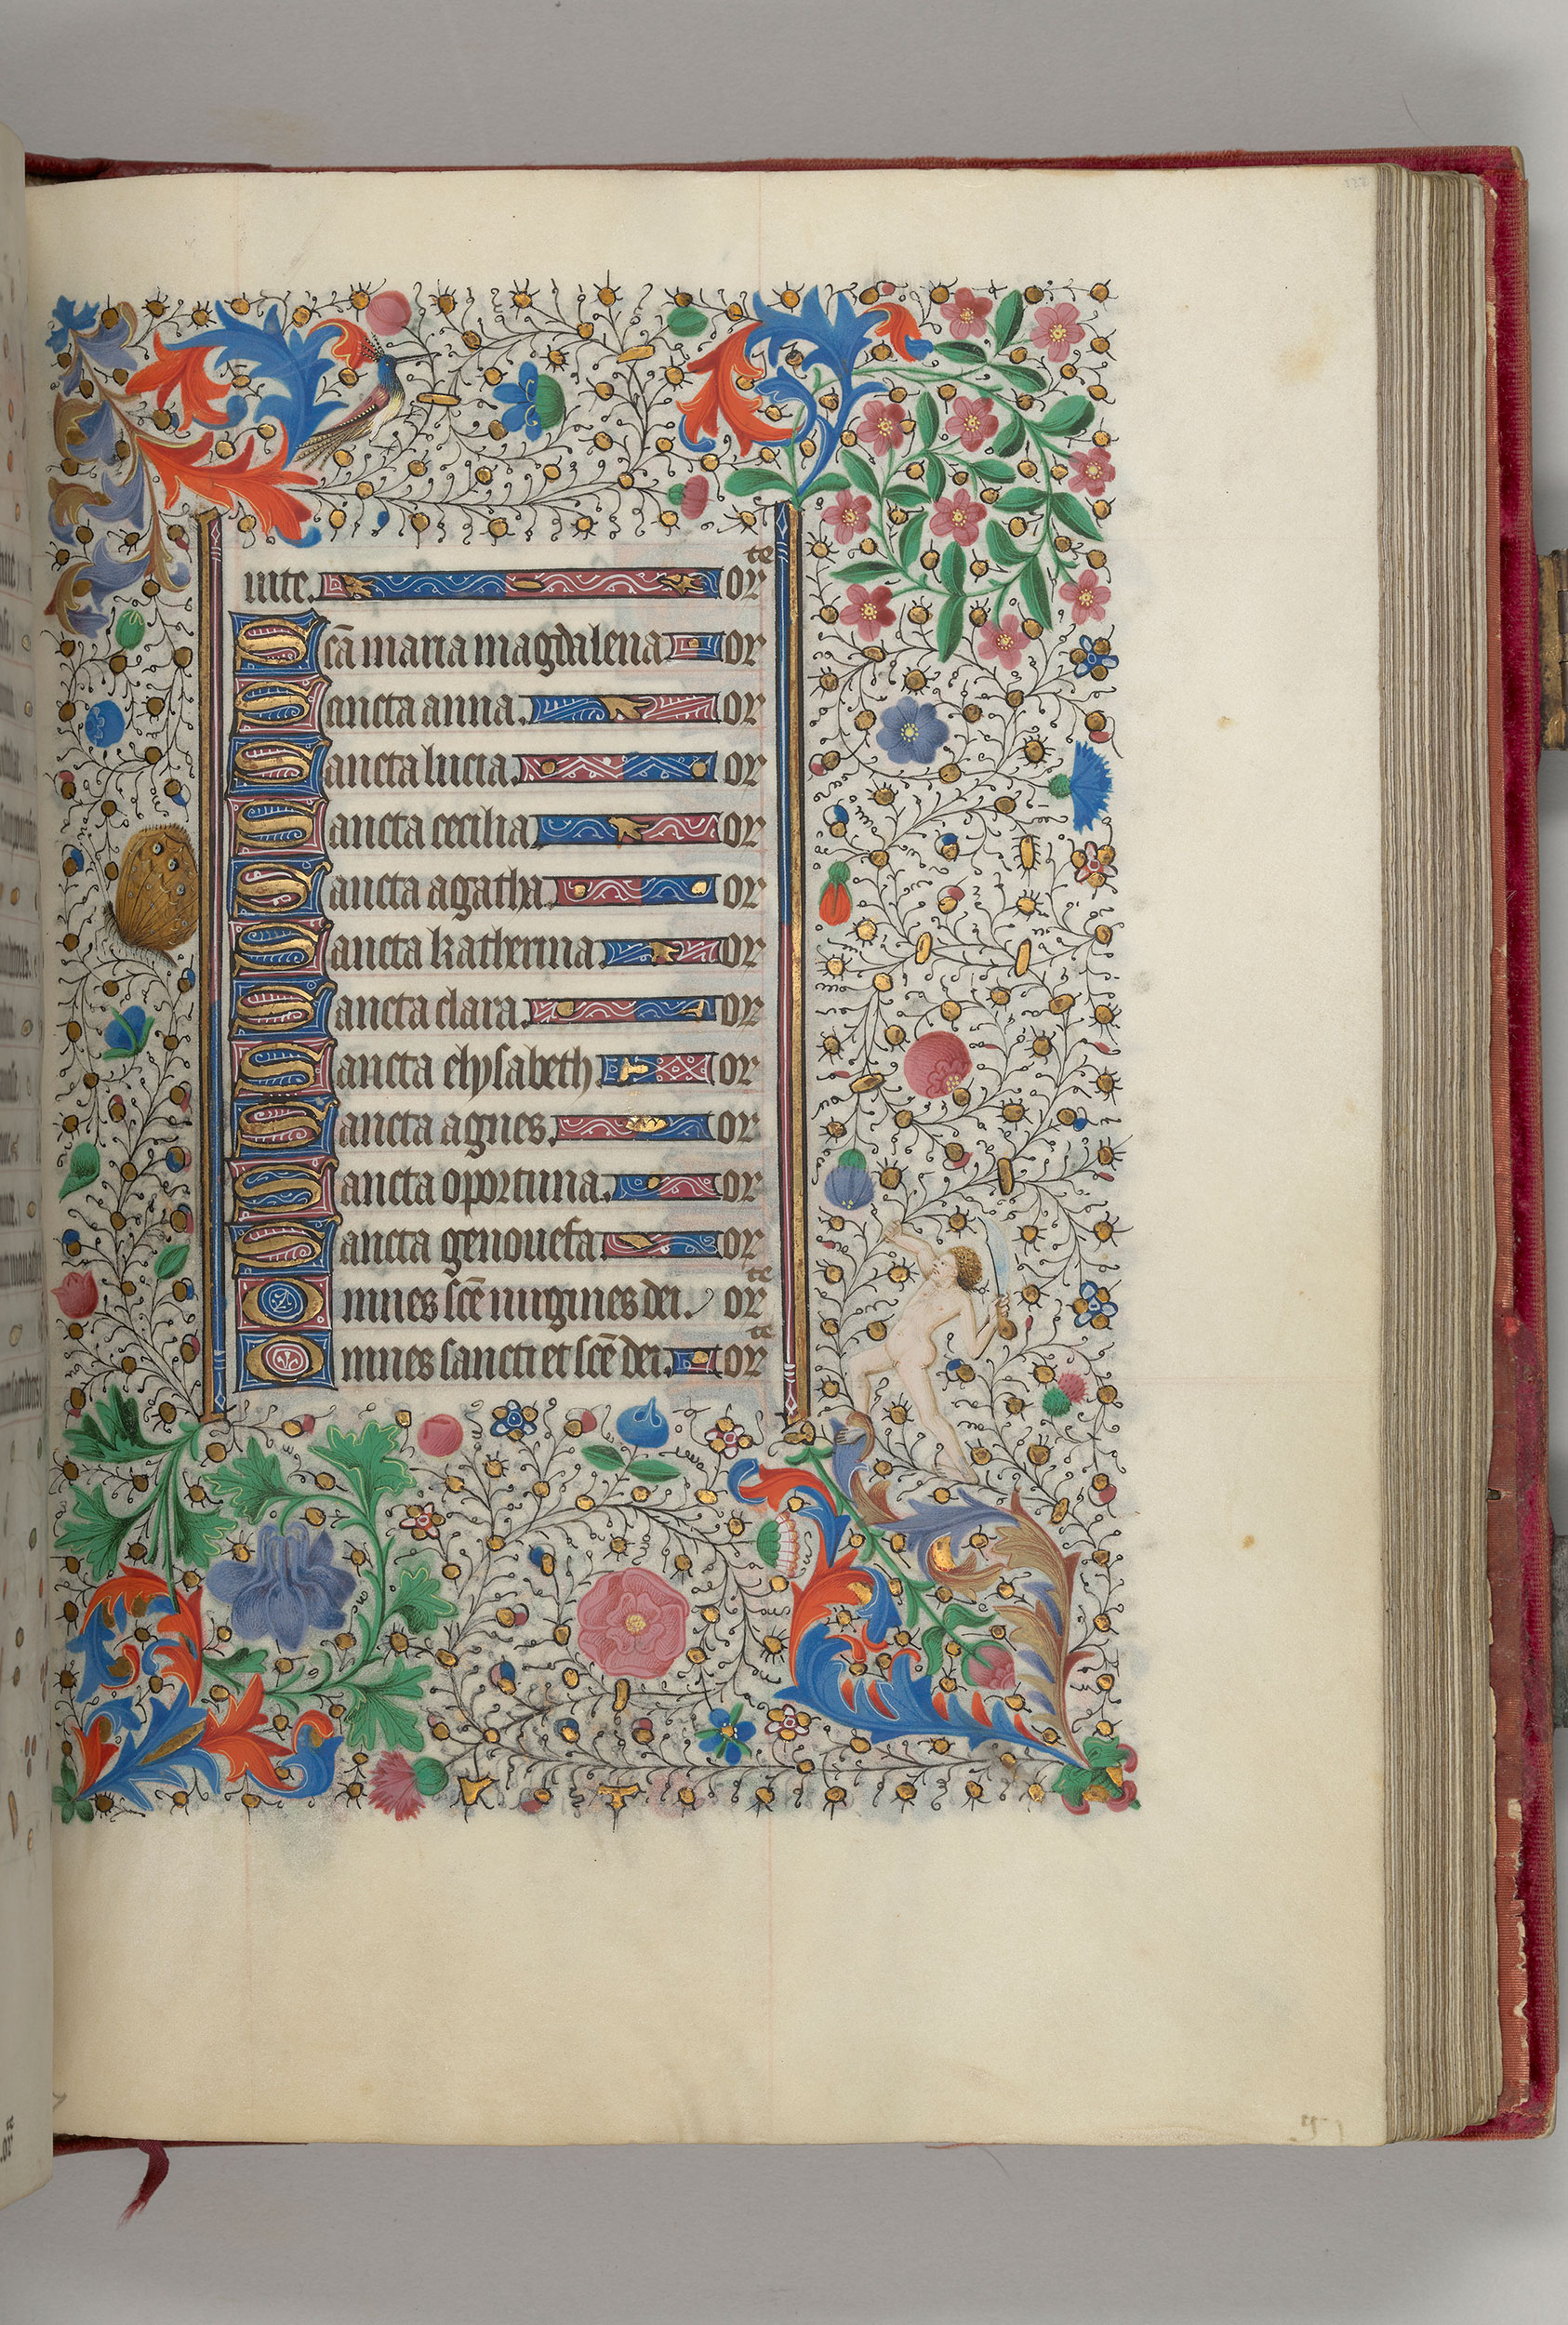 uite. orte
Scā maria magdalena or
Sancta anna. or
Sancta lucia. or
Sancta cecilia or
Sancta agatha. or
Sancta katherina or
Sancta clara. or
Sancta elysabeth. or
Sancta agnes. or
Sancta oportuna. or
Sancta genouefa or
Omnes scē uirgines dei. orte
Omnes sancti et scē dei. orte